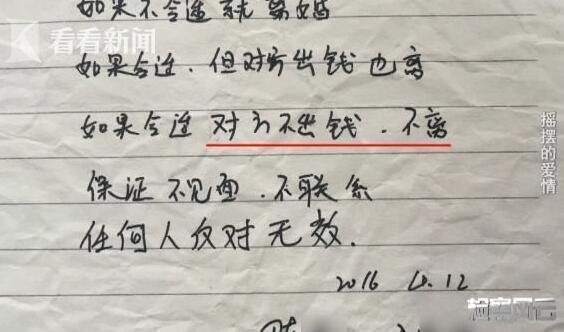 如果不合适就离婚
看看新闻
如果合适.但对方出钱也离
如果合适 对方不出钱.不离
摇摆的爱情
保证不见面.不联系
任何人反对无效.
2016 4.12
档案风云